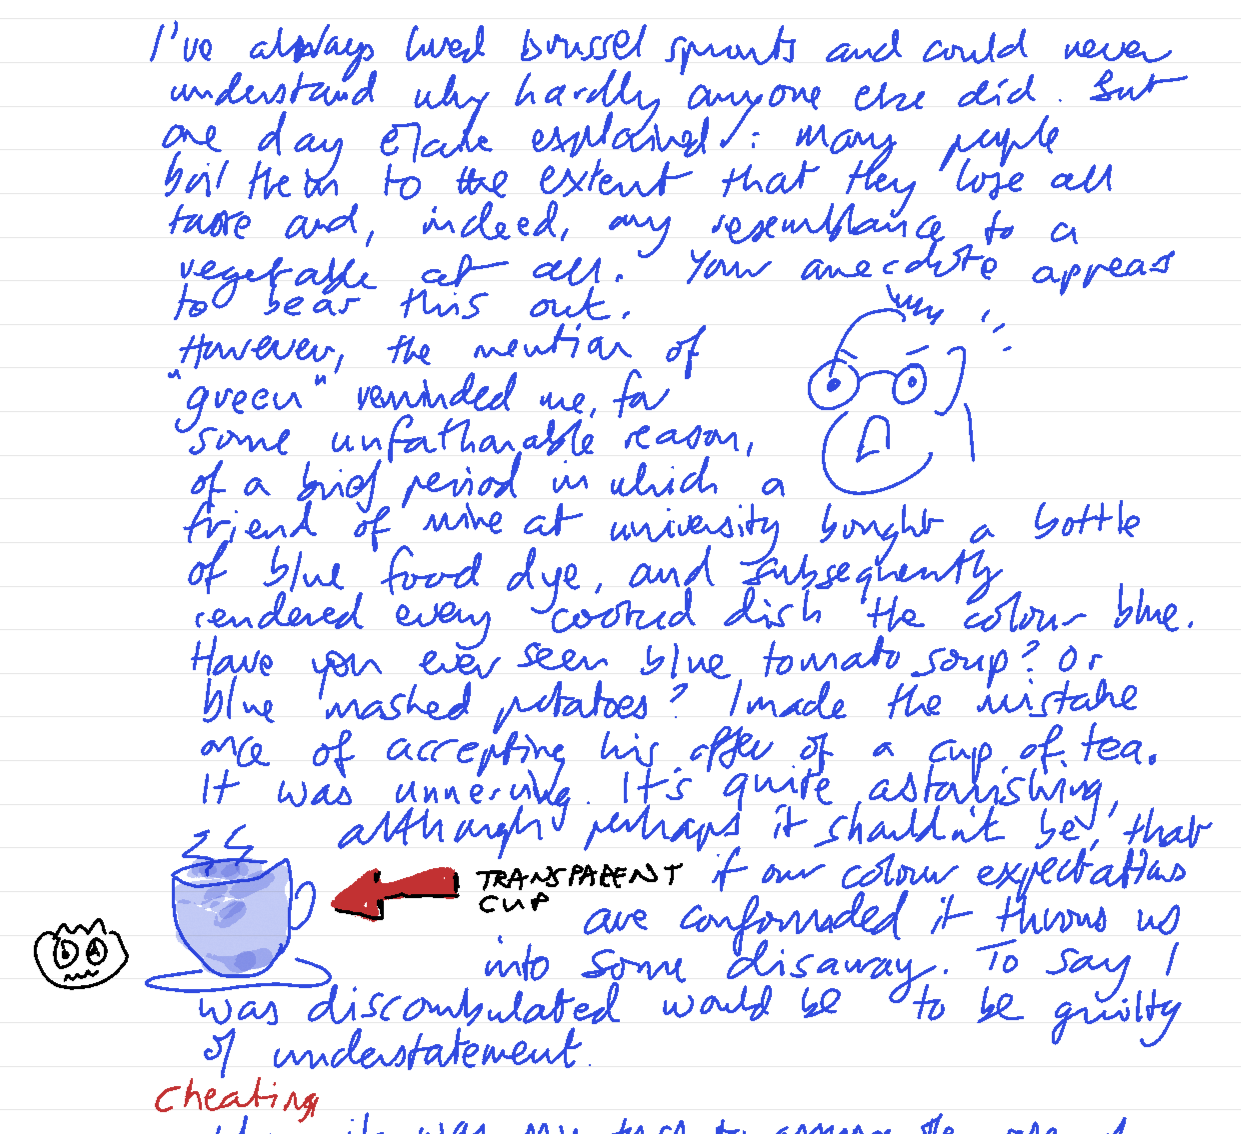 I've always loved brussel sprouts and could never
understand why hardly anyone else did. But
one day explained: many people
boil them to the extent that they lose all
taste and, indeed, any resemblance to a
vegetable at all. Your anecdote appears
to bear this out.
However, the mention of
"green" reminded me, for
some unfathomable reason,
of a brief period in which a
friend of mine at university bought a bottle
of blue food dye, and subsequently
rendered every cooked dish the colour blue.
Have you ever seen blue tomato soup? Or
blue mashed potatoes? I made the mistake
once of accepting his offer of a cup of tea.
It was unnerving. It's quite astonishing,
although perhaps it shouldn't be, that
TRANSPARENT
CUP
if our colour expectations
are confounded it throws us
into some disarray. To say I
was discombulated would be to be guilty
of understatement.
cheating